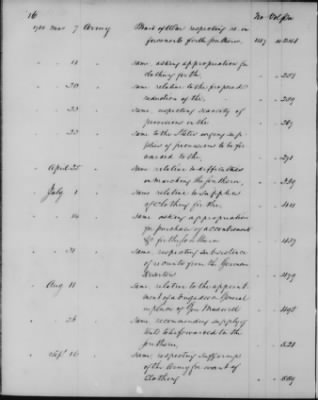 16
No Vol. Pa
1780 Mar 7 Army Board of War respecting re in
forcements for the southern, 147
" " 11 same asking appropriation for
clothing for the, " " 253
" " 20 same relative to the proposed
reduction of the, " " 259
" " 22 same, respecting scarcity of
provisions in the " " 267
" " 23 same to the States urging sup
plies of provisions to be for
warded to the, " " 271
" April 25 " same relative to difficulties
in marching the southern, " "
" July 1 " same relative to supplies
of clothing for the, " " 401
" " 14 " same asking appropriation
for purchase of accoutrements
&c for the southern " " 437
" " 31 " same respecting subsistence
of recruits from the German
deserters " " 479
" Aug 11 " same relative to the appoint
ment of a brigadier General
in place of Gen Maxwell " " 495
" " 26 " same recommending supply of
tents to be forwarded to the
southern, " " 521
" Sept 16 " same respecting sufferings
of the Army for want of
Clothing " "